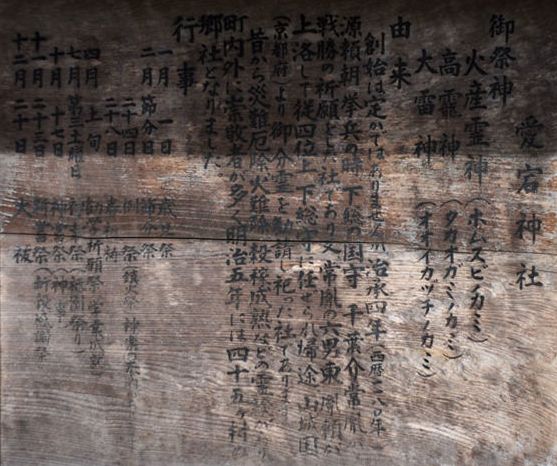 愛宕神社
御祭神
火産霊神（ホムスビノカミ）
高龗神（タカオガミノカミ）
大雷神（オオイカヅチノカミ）
由来
創始は定かではありませんが治承四年（西暦一一八〇年）
源頼朝挙兵の時、下総の国守 千葉介常胤が
戦勝の祈願をした社であり又、常胤の六男東 胤頼が
上洛して従四位上下総守に任ぜられ帰途山城国
（京都府）より御分霊を勧請し祀った社であります
昔から災難厄除火難除穀稼成熟などの霊験があり
町内外に崇敬者が多く明治五年には四十五ヶ村の
郷社となりました
行事
一月 一日 歳旦祭
二月 節分日 節分祭
二十四日 例祭
二十八日
四月 上旬 祈願祭
七月 第三土曜日 （祇園祭り）
十月 十七日 神嘗祭
十一月 二十三日 新嘗祭（新穀感謝祭
十二月 二十日 大祓